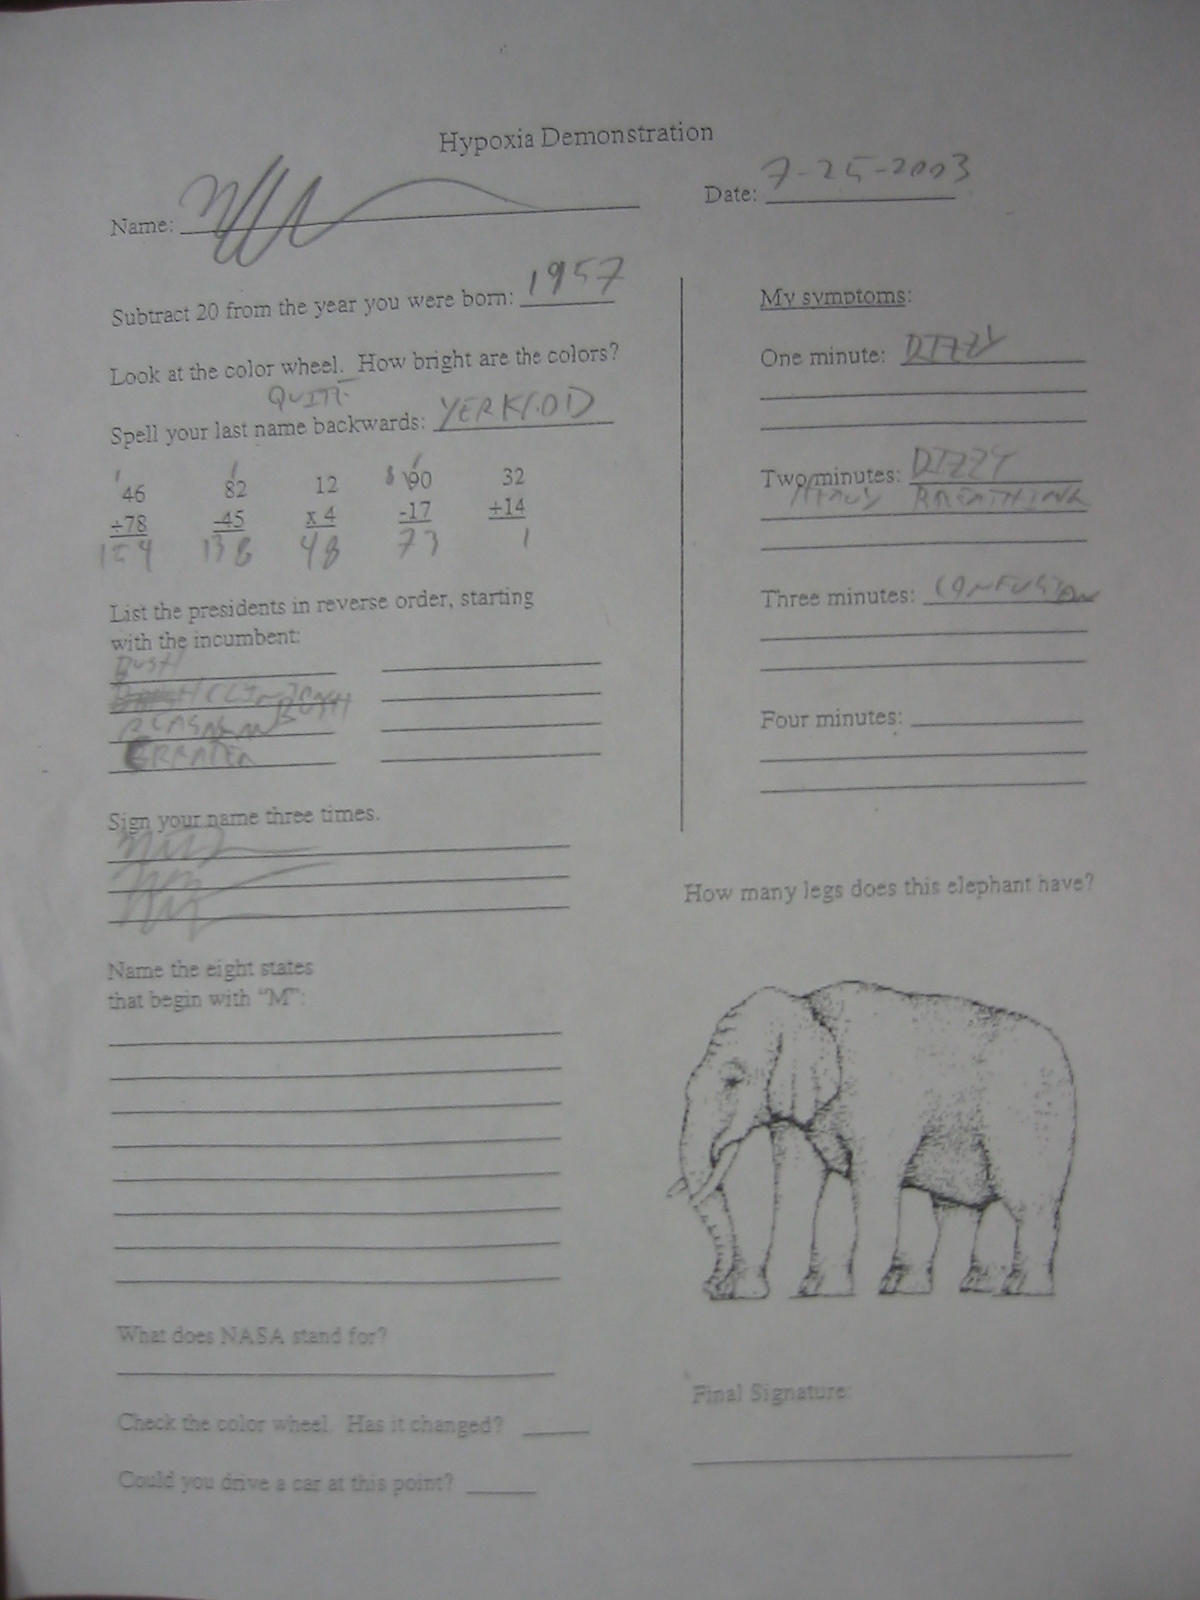 Hypoxia Demonstration
Name:
Date: 7-25-2003
Subtract 20 from the year you were born: 1957
Look at the color wheel. How bright are the colors?
QUITE
Spell your last name backwards:
46 82 12 90 32
+78 -45 x 4 -17 +14
138 48 73 1
List the presidents in reverse order, starting
with the incumbent:
BUSH
Sign your name three times.
Name the eight states
that begin with "M":
What does NASA stand for?
Check the color wheel. Has it changed?
Could you drive a car at this point?
My symptoms:
One minute: DIZZY
Two minutes: DIZZY
HEAVY BREATHING
Three minutes: CONFUSION
Four minutes:
How many legs does this elephant have?
Final Signature: